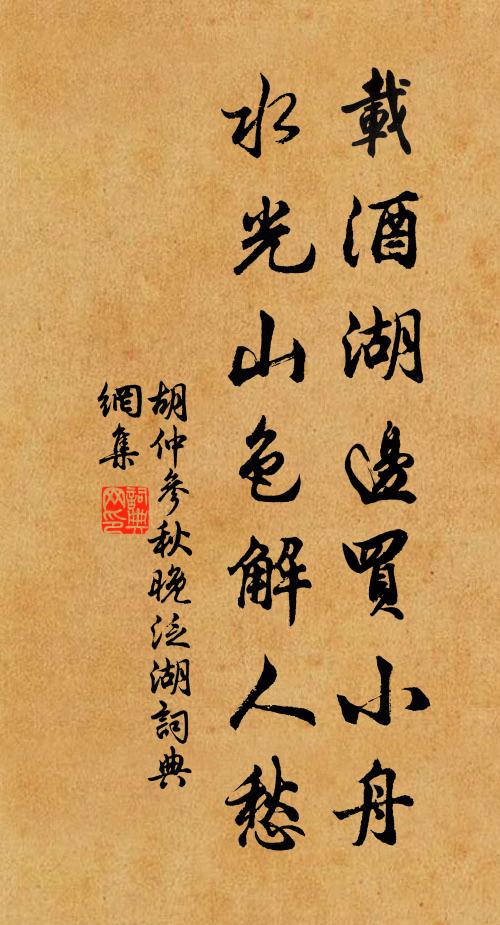 載酒湖邊買小舟
水光山色解人愁
胡仲參秋晚泛湖詞典
網集
詞典網印